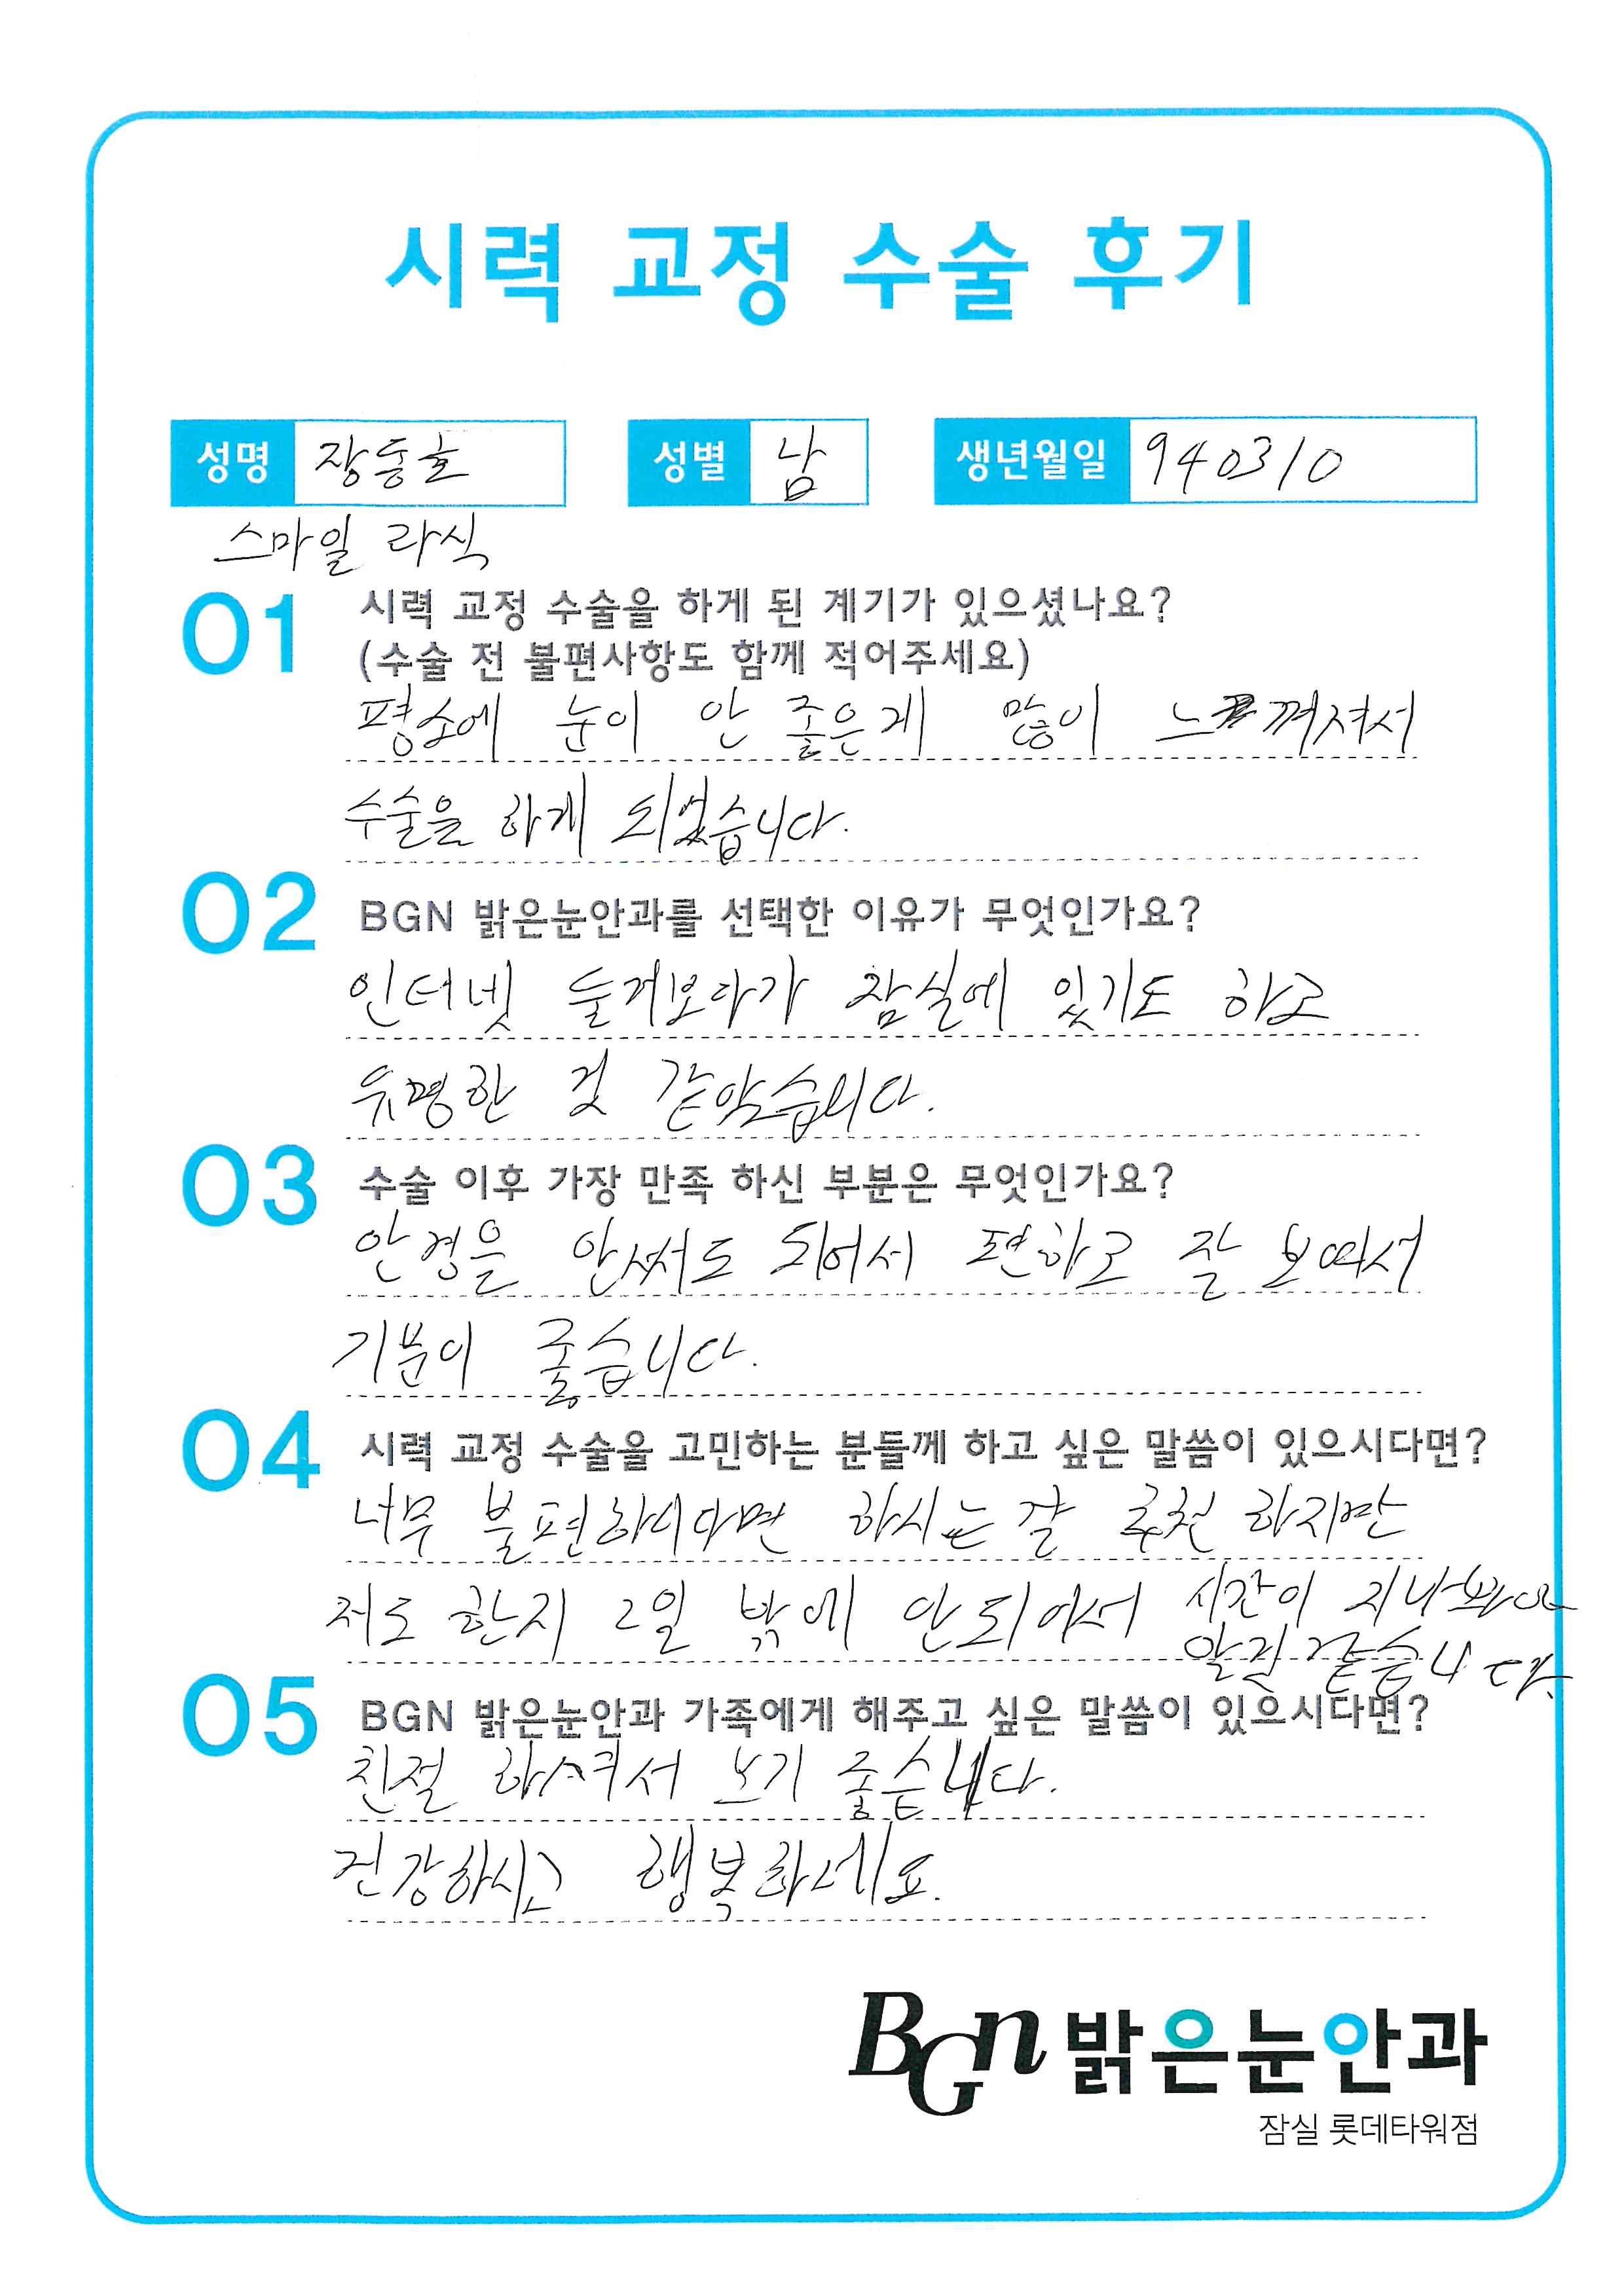 시력 교정 수술 후기
성명 장동호 성별 남 생년월일 940310
스마일 라식
01 시력 교정 수술을 하게 된 계기가 있으셨나요?
(수술 전 불편사항도 함께 적어주세요)
평소에 눈이 안 좋은게 많이 느껴져서
수술을 하게 되었습니다.
02 BGN 밝은눈안과를 선택한 이유가 무엇인가요?
인터넷 둘러보다가 잠실에 있기도 하고
유명한 것 같았습니다.
03 수술 이후 가장 만족 하신 부분은 무엇인가요?
안경을 안써도 되어서 편하고 잘 보여서
기분이 좋습니다.
04 시력 교정 수술을 고민하는 분들께 하고 싶은 말씀이 있으시다면?
너무 불편하시다면 하시는걸 추천 하지만
저도 한지 2일 밖에 안되어서 시간이 지나봐야
알것 같습니다.
05 BGN 밝은눈안과 가족에게 해주고 싶은 말씀이 있으시다면?
친절 하셔서 보기 좋습니다.
건강하시고 행복하세요.
BGN 밝은눈안과
잠실 롯데타워점